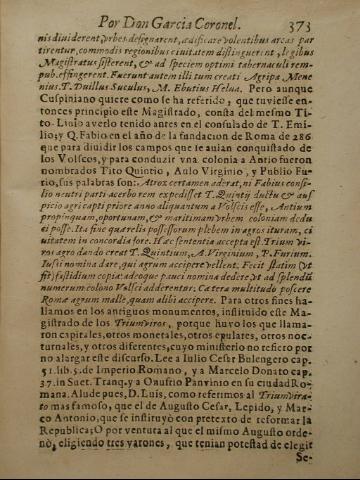 Por Don Garcia Coronel. 373
nis diuiderent, vrbes designarent, ædificare volentibus areas par
tirentur, commodis regionibus ciuitatem distinguerent, legibus
Magistratus sisterent, & ad speciem optimi tabernaculi rem-
pub. effingerent. Fuerunt autem illi tum creati Agripa Mene
nius. T. Duillus Suculus, M. Ebutius Helua. Pero aunque
Cuspiniano quiere como se ha referido, que tuuiesse en-
tonces principio este Magistrado, consta del mesmo Ti-
to. Liuio averlo tenido antes en el consulado de T. Emi-
lio; y Q. Fabio en el año de la fundacion de Roma de 286
que para diuidir los campos que se auian conquistado de
los Volscos, y para conduzir vna colonia a Antio fueron
nombrados Tito Quintio, Aulo Virginio, y Publio Fu-
rio, sus palabras son: Atrox certamen aderat, ni Fabius consi-
lio neutri parti acerbo rem expedisset T. Quintij ductu & aus
picio agri capti priore anno aliquantum à Volscis esse, Antium
propinquam, oportunam, & maritimam vrbem coloniam dedu
ci posse. Ita sine querelis possessorum plebem in agros ituram, ci
uitatem in concordia fore. Hæc sententia accepta est. Trium vi-
ros agro dando creat T. Quintium, A. Virginium, P. Furium.
Iussi nomina dare, qui agrum accipere vellent. Fecit statim (vt
fit) fastidium copia: adeoque pauci nomina dedere vt ad splendũ
numerum colono Volsci adderentur. Cætera multitudo poscere
Romæ agrum malle, quam alibi accipere. Para otros fines ha-
llamos en los antiguos monumentos, instituido este Ma-
gistrado de los Triumviros, porque huvo los que llama-
ron capitales, otros monetales, otros epulares, otros noc-
turnales, y otros diferentes, cuyo ministerio no refiero por
no alargar este discurso. Lee a Iulio Cesar Bulengero cap.
51. lib. 5. de Imperio Romano, y a Marcelo Donato cap.
37. in Suet. Tranq. y a Onufrio Panvinio en su ciudad Ro-
mana. Alude pues, D. Luis, como referimos al Triumvira-
to mas famoso, que el de Augusto Cesar, Lepido, y Mar-
co Antonio, que se instituyò con pretexto de reformar la
Republica; O por ventura al que el mismo Augusto orde-
nò, eligiendo tres varones, que tenian potestad de elegir
Se-